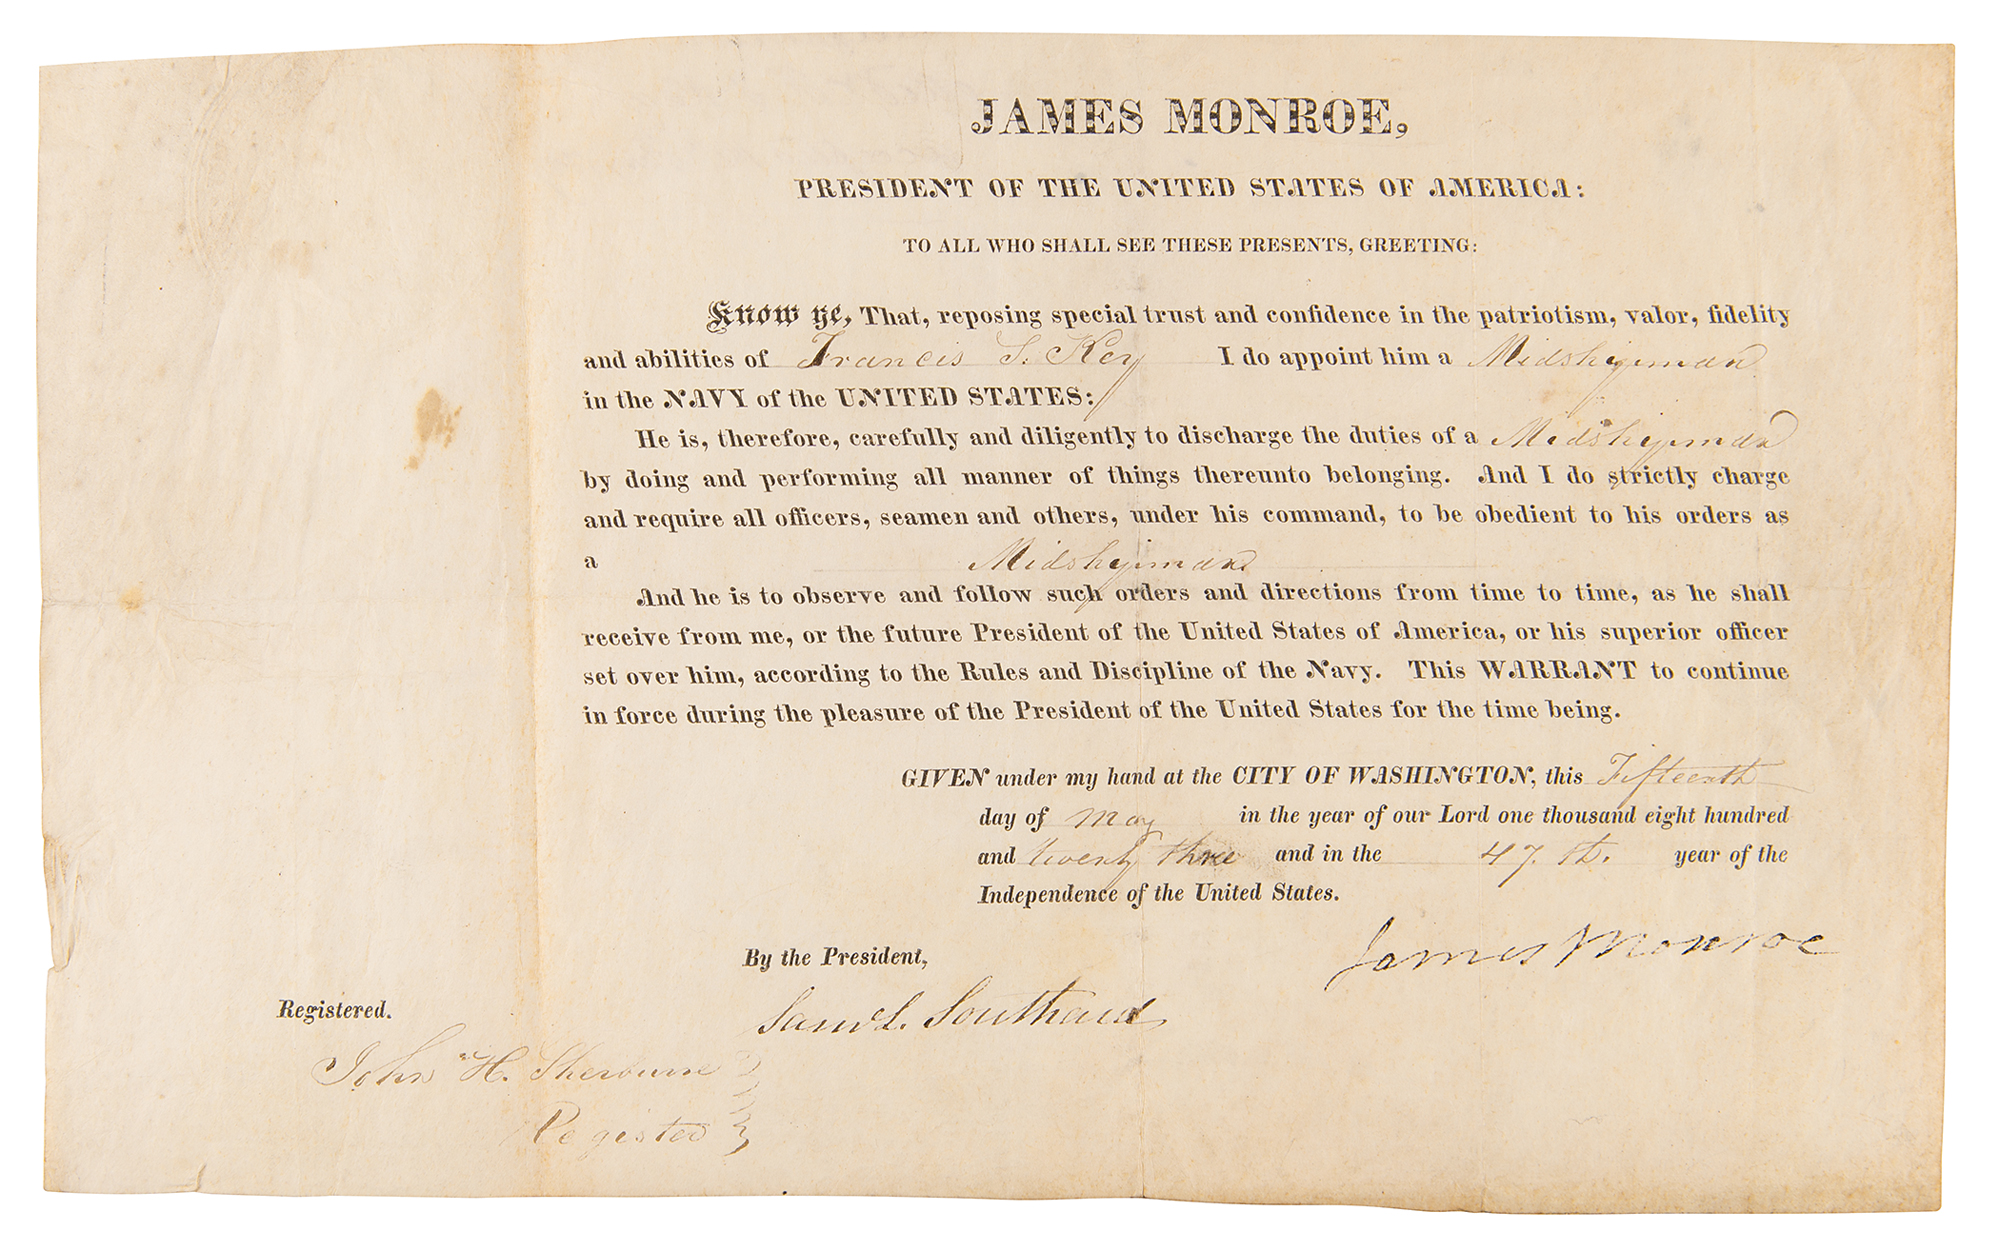 JAMES MONROE,
PRESIDENT OF THE UNITED STATES OF AMERICA:
TO ALL WHO SHALL SEE THESE PRESENTS, GREETING:
Know ye, That, reposing special trust and confidence in the patriotism, valor, fidelity
and abilities of Francis S. Key I do appoint him a Midshipman
in the NAVY of the UNITED STATES:
He is, therefore, carefully and diligently to discharge the duties of a Midshipman
by doing and performing all manner of things thereunto belonging. And I do strictly charge
and require all officers, seamen and others, under his command, to be obedient to his orders as
a Midshipman
And he is to observe and follow such orders and directions from time to time, as he shall
receive from me, or the future President of the United States of America, or his superior officer
set over him, according to the Rules and Discipline of the Navy. This WARRANT to continue
in force during the pleasure of the President of the United States for the time being.
GIVEN under my hand at the CITY OF WASHINGTON, this Fifteenth
day of May in the year of our Lord one thousand eight hundred
and twenty three and in the 47.th. year of the
Independence of the United States.
James Monroe
By the President,
Saml. L. Southard
Registered.
John H. Sherburne
Register